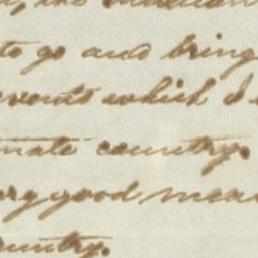 to go and bring
events which I
nate country.
ery good mea
ountry.